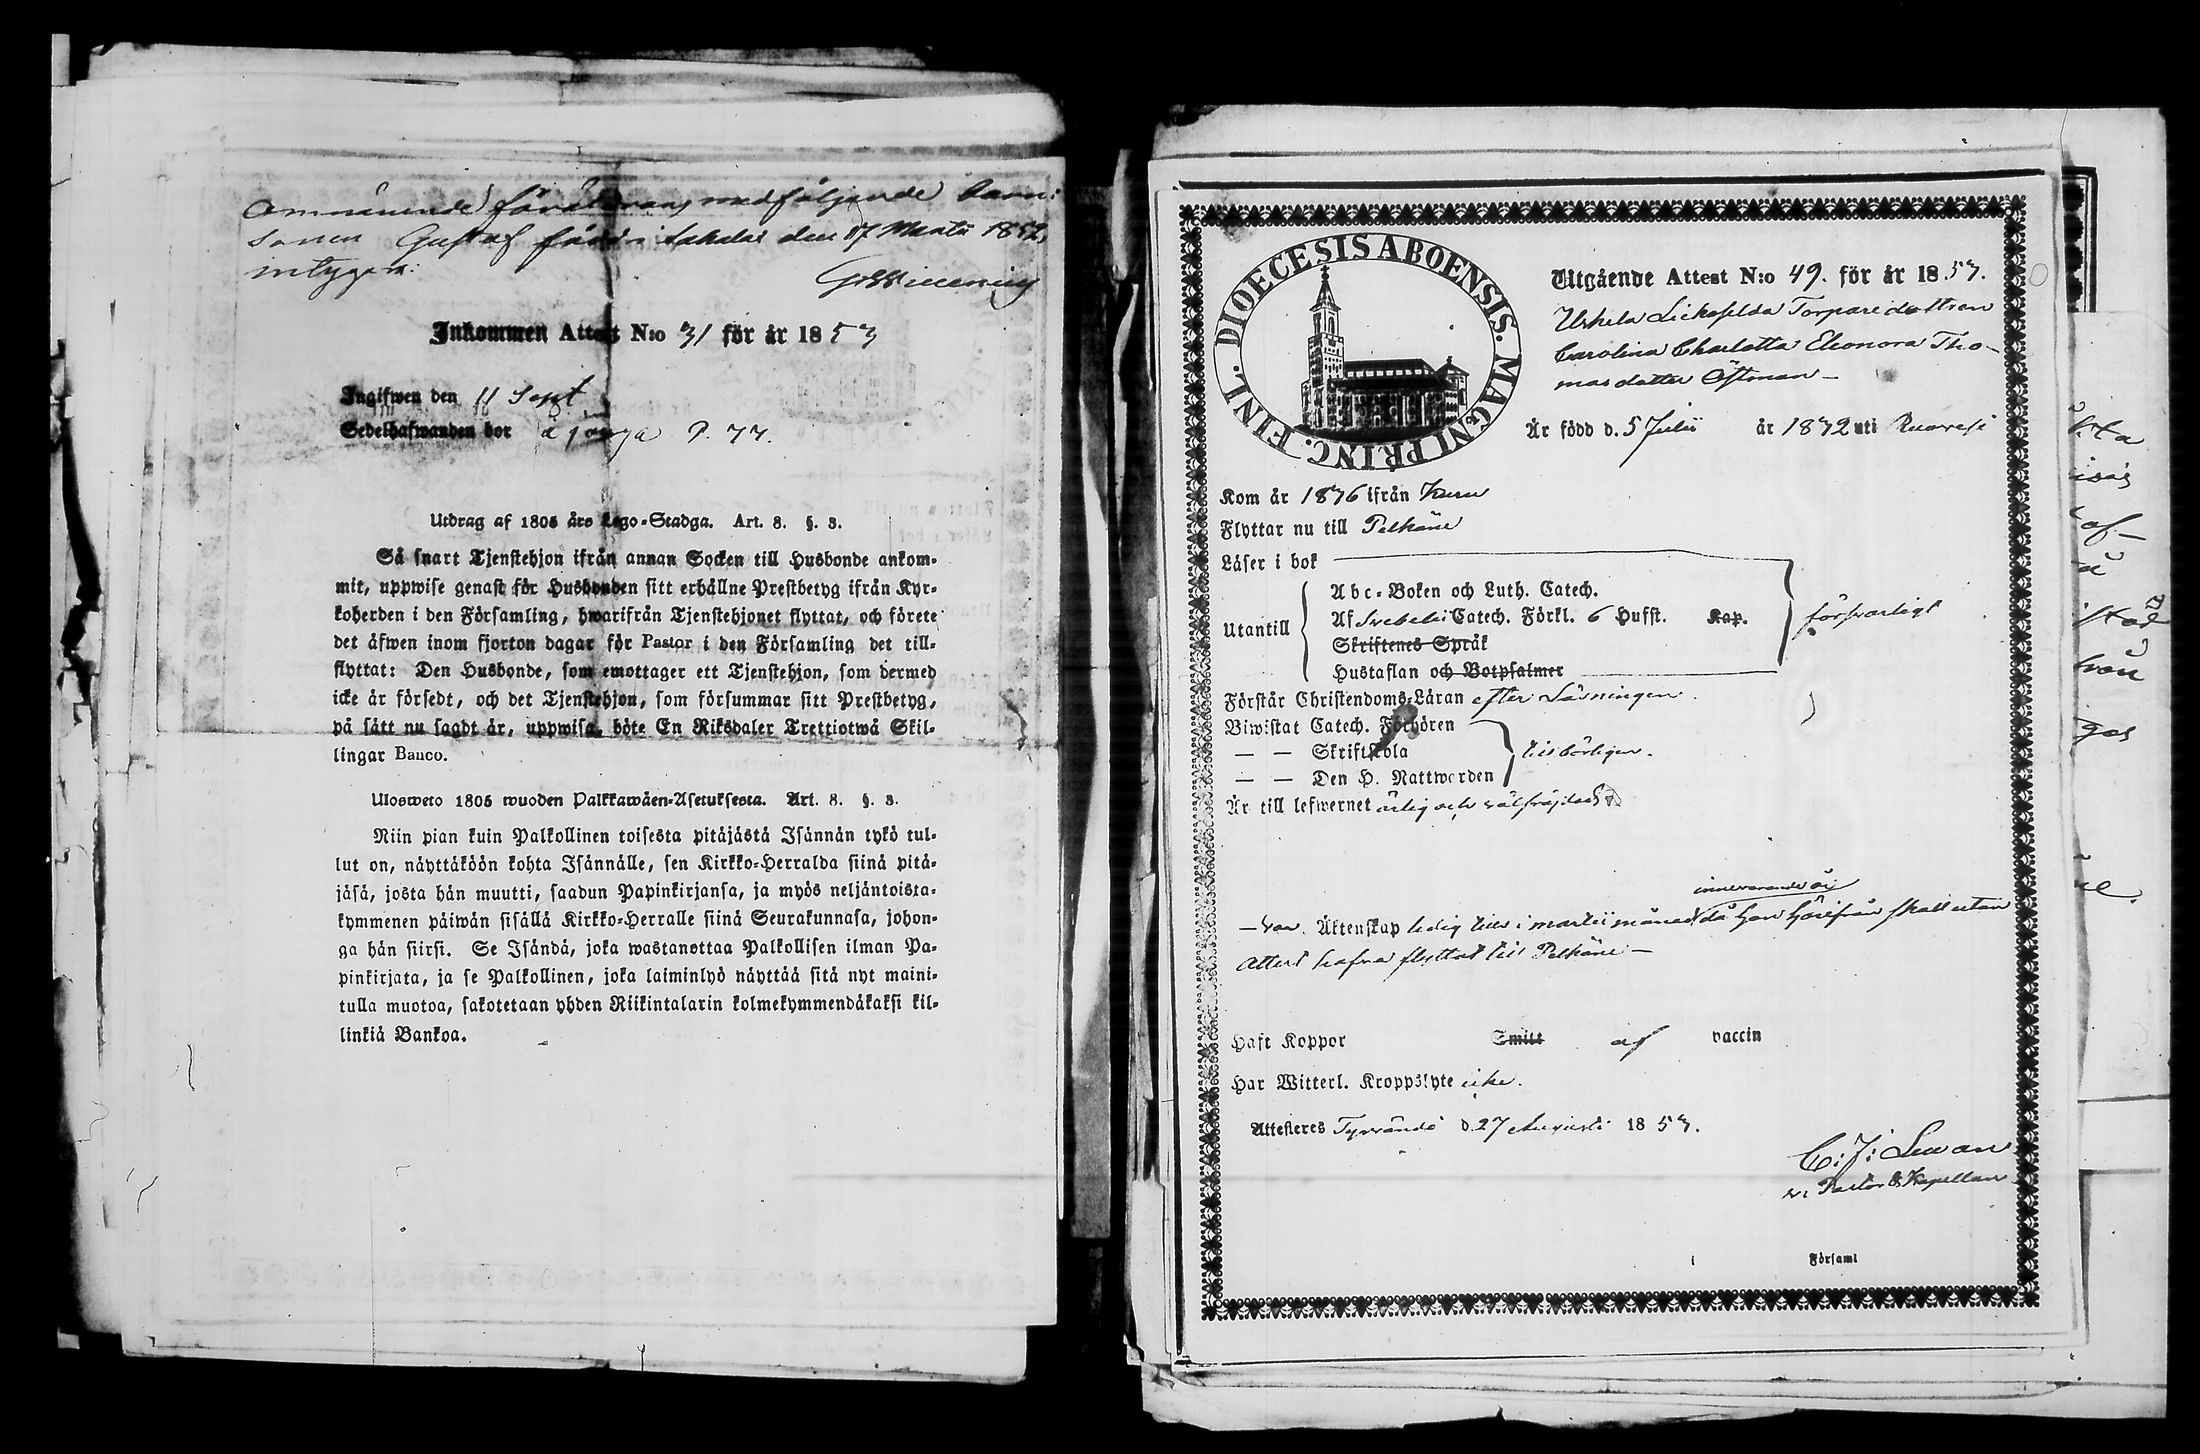 Omnämnde föräldrars medföljande barn:
sonen Gustaf född i Sahalax den 17 Martii 1852,
intygar:
Inkommen Attest N:o 31 för år 1853
Ingifwen den 11 Sept
Sedelhafwanden bor å P. 77.
Utdrag af 1805 års Lego-Stadga. Art. 8. §. 3.
Så snart Tjenstehjon ifrån annan Socken till Husbonde ankom-
mit, uppwise genast för Husbonden sitt erhållne Prestbetyg ifrån Kyr-
koherden i den Församling, hwarifrån Tjenstehjonet flyttat, och förete
det äfwen inom fjorton dagar för Pastor i den Församling det till-
flyttat: Den Husbonde, som emottager ett Tjenstehjon, som dermed
icke är försedt, och det Tjenstehjon, som försummar sitt Prestbetyg,
på sätt nu sagdt är, uppwisa, böte En Riksdaler Trettiotwå Skil-
lingar Banco.
Ulosweto 1805 wuoden Palkkawäen-Asetuksesta. Art. 8. §. 3.
Niin pian kuin Palkollinen toisesta pitäjästä Isännän tykö tul-
lut on, näyttäköön kohta Isännälle, sen Kirkko-Herralda siinä pitä-
jäsä, josta hän muutti, saadun Papinkirjansa, ja myös neljäntoista-
kymmenen päiwän sisällä Kirkko-Herralle siinä Seurakunnasa, johon-
ga hän siirsi. Se Isändä, joka wastanottaa Palkollisen ilman Pa-
pinkirjata, ja se Palkollinen, joka laiminlyö näyttää sitä nyt maini-
tulla muotoa, sakotetaan yhden Riikintalarin kolmekymmendäkaksi kil-
linkiä Bankoa.
FINL. DIOECESIS ABOENSIS. MAGNI PRINC.
Utgående Attest N:o 49. för år 1853.
Torpare dottren
Carolina Charlotta Eleonora Tho-
masdotter Östman —
Är född d. 5 Julii år 1832 uti Ruovesi
Kom år 1836 ifrån Kuru
Flyttar nu till Pelkäne
Läser i bok
Utantill
Abc-Boken och Luth. Catech.
Af Svebelii Catech. Förkl. 6 Hufst. Kap.
Skriftenes Språk
Hustaflan och Botpsalmer
försvarligt
Förstår Christendoms-Läran efter Läsningen.
Biwistat Catech. Förhören
— — Skriftskola
— — Den H. Nattward­en
tillbörligen.
Är till lefwernet ärlig och välfräjdad
innevarande år
— var. Äktenskap ledig till i martii månad då hon härifrån skall utan
Attest hafva flyttat till Pelkäne —
Haft Koppor Smitt af vaccin
Har Witterl. Kroppslyte icke.
Attesteres Tyrvändö d. 27 Augusti 1853.
C: J: Lewan
v: Pastor & Kapellan
i Församl